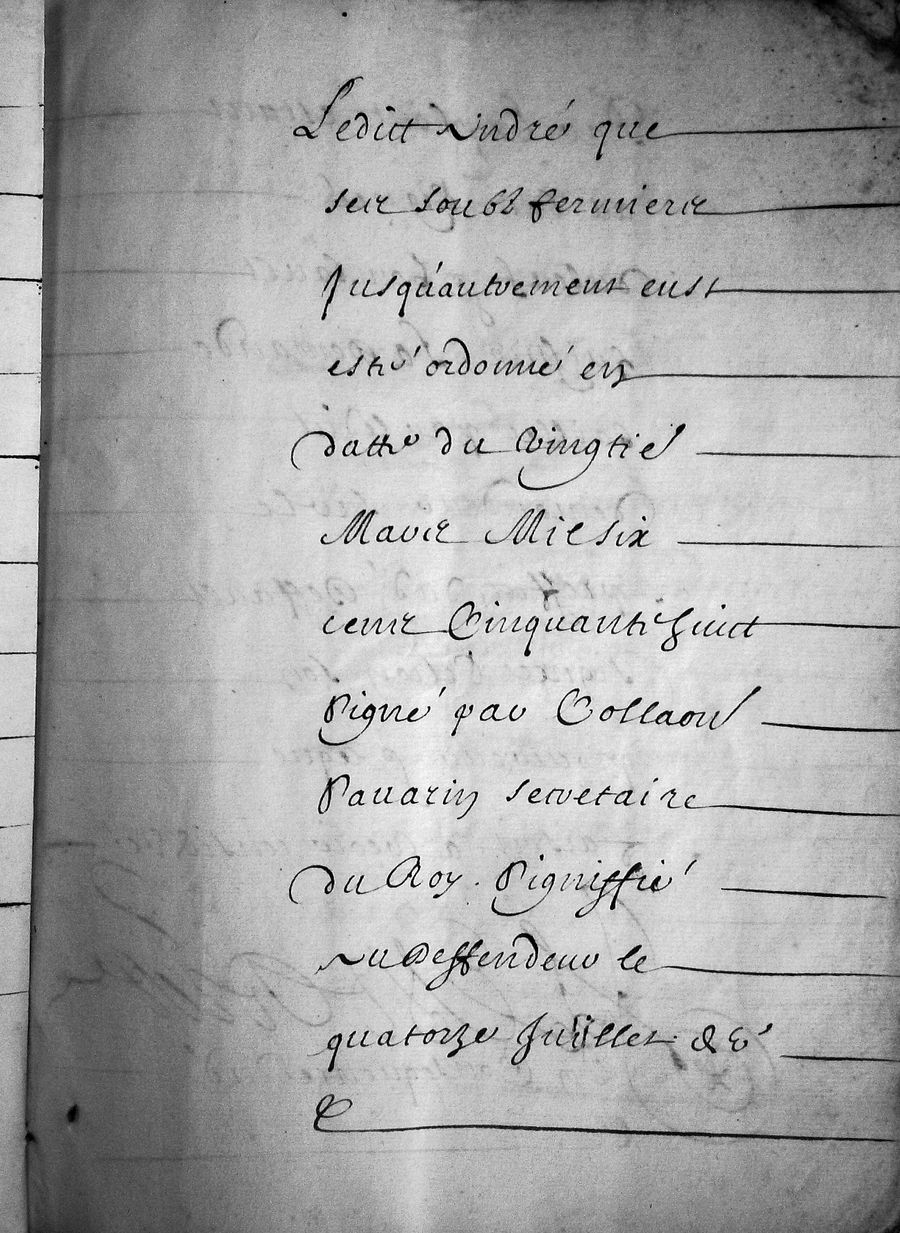 Ledict André que
ses soubz fermiers
Jusqu'autrement eust
esté ordonné en
datte du Vingtie
Mars Mil six
cens Cinquante huict
Signé par Collaon
Savarin secretaire
du Roy. Signiffié
au Deffendeur le
quatorze Juillet &